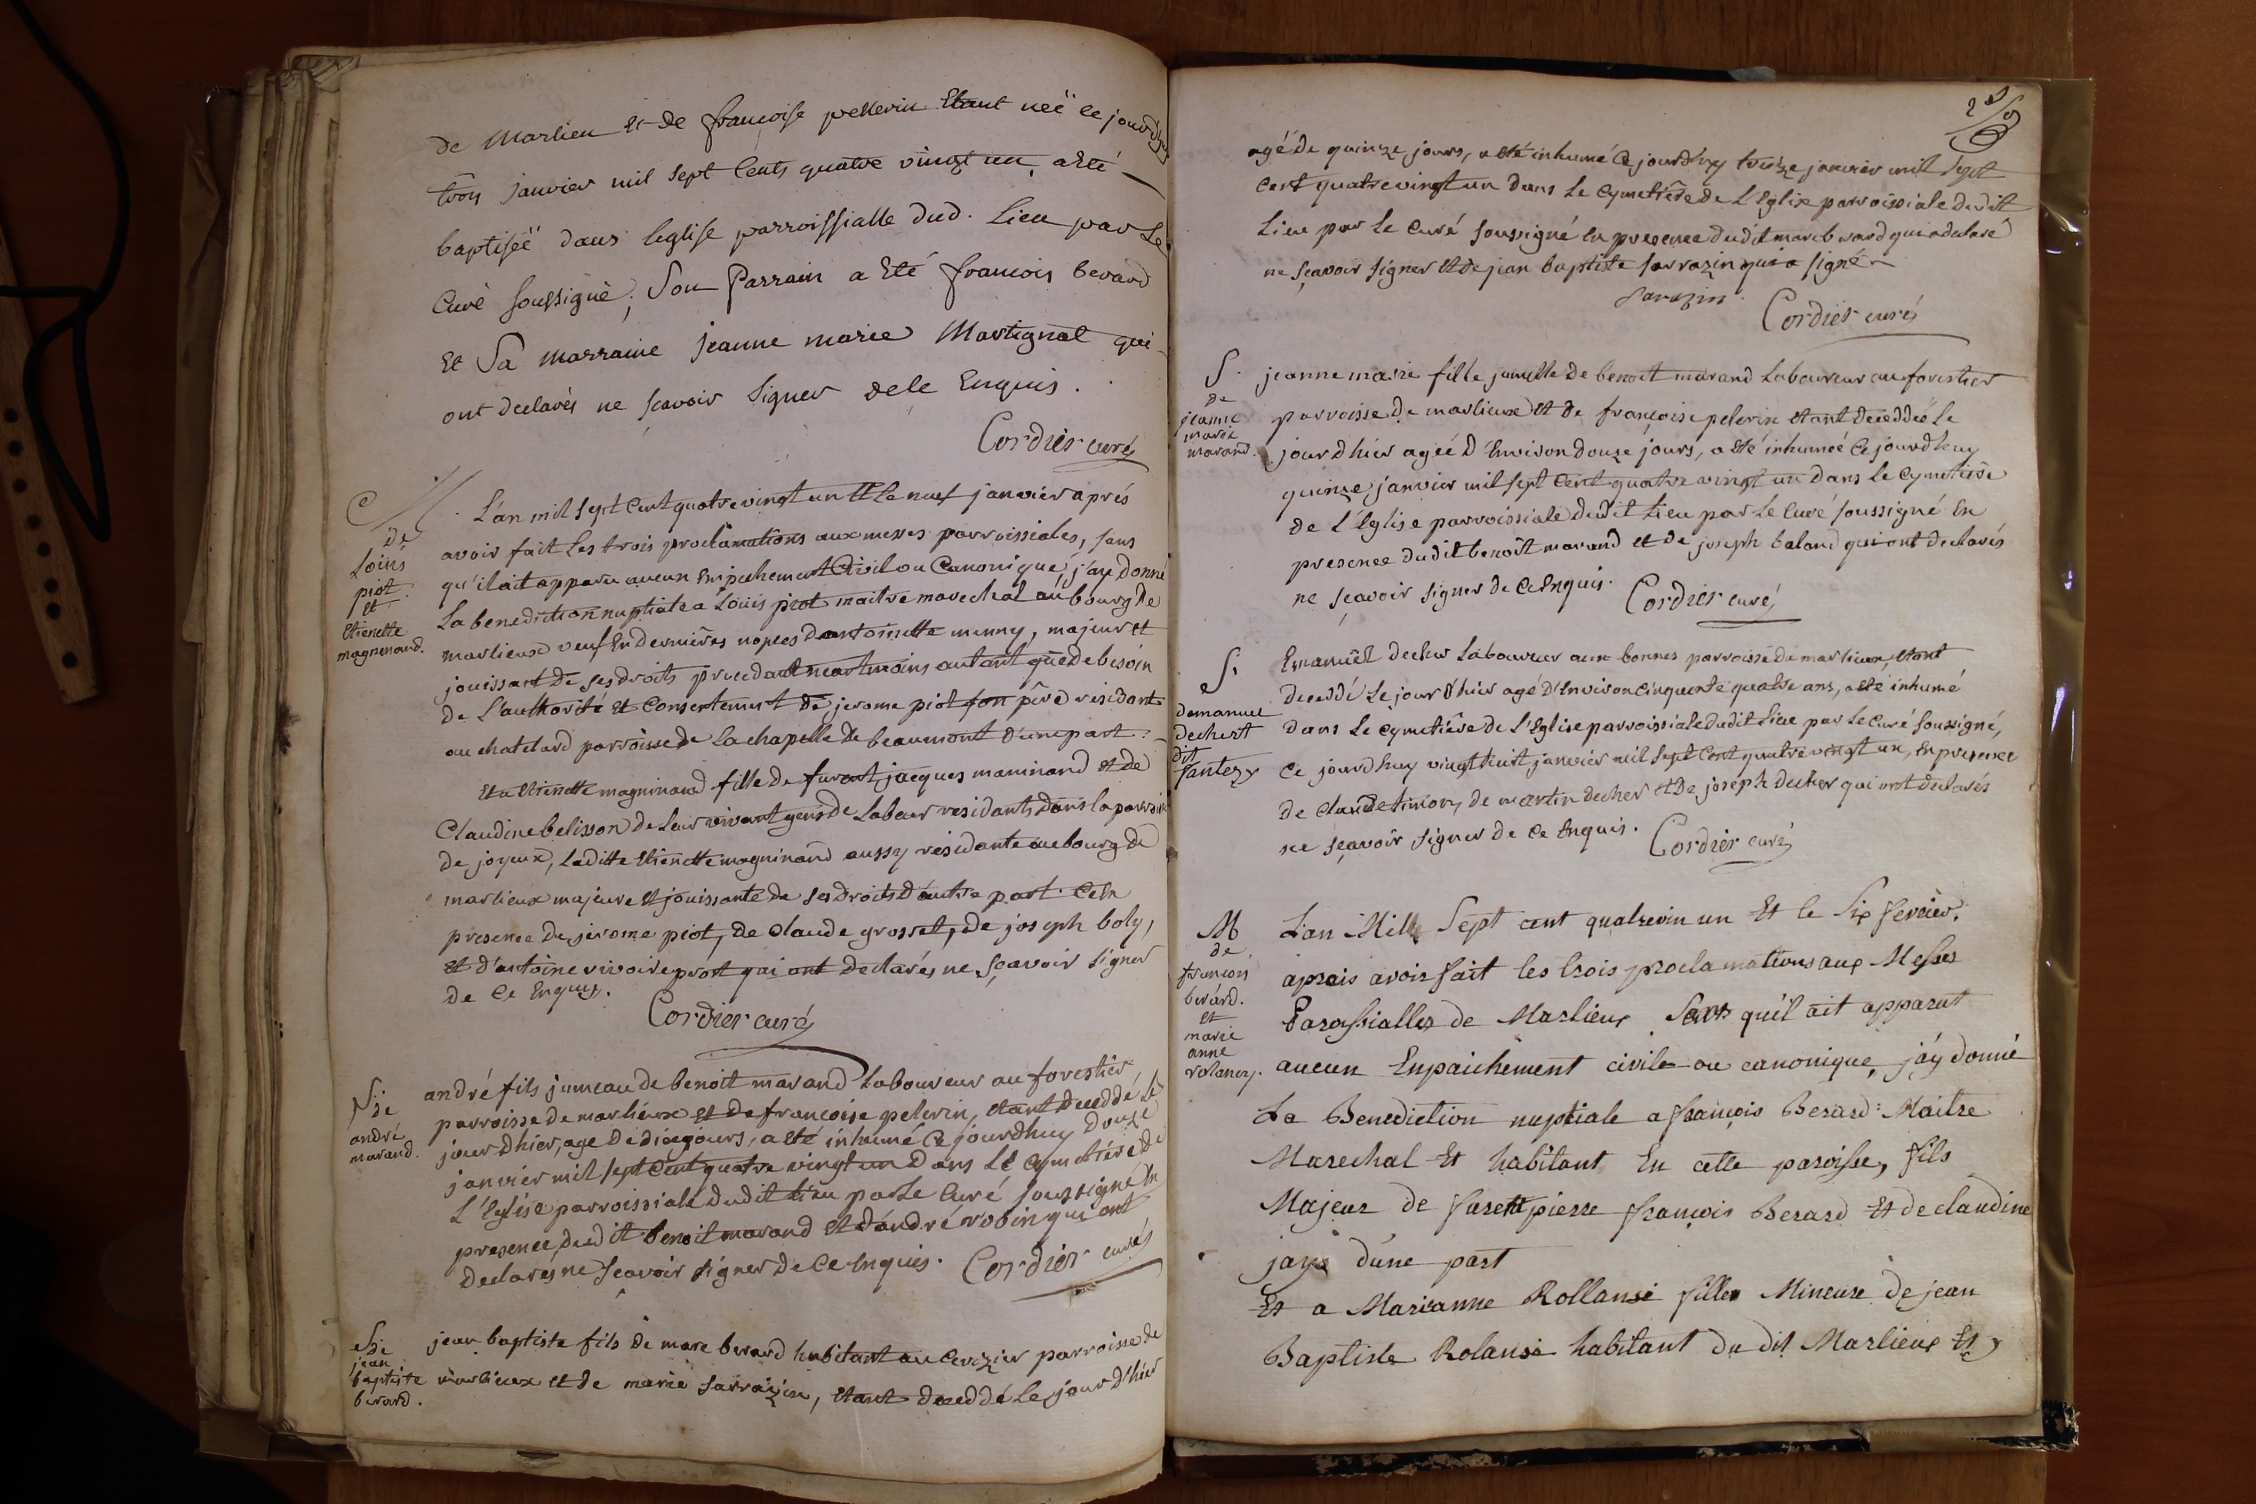 de Marlieu et de francoise pellerin Etant neë ce jourdhuy
trois janvier mil sept Cents quatre vingt un, a Eté
baptiseë dans leglise parroissialle dud. Lieu par Le
Curé soussigné, Son Parrain a Eté francois berard
Et Sa marraine jeanne marie Martignat qui
ont declarés ne scavoir signer dele Enquis.
Cordier curé
M
de
Loüis
piot
et
Etienette
magninand.
L'an mil sept Cent quatre vingt un Et Le neuf janvier aprés
avoir fait Les trois proclamations aux messes parroissiales, sans
qu'il ait apparu aucun Empechement Civil ou Canonique j'ay donné
La benediction nuptiale a Loüis piot maitre marechal au bourg de
marlieux veuf En dernieres nopces dantoinette munny, majeur et
jouissant de ses droits procedant neantmoins autant que de besoin
de L'authorité et Consentement de jerome piot son pére residant
au chatelard parroisse de La chapelle de beaumont d'une part.
Et a Etienette magninand fille de furent jacques maninand et de
Claudine belisson de Leur vivant gens de Labeur residants dans la parroisse
de joyeux, Laditte Etienette magninand aussy residante au bourg de
marlieux majeure et jouissante de ses droits d'autre part. Ce En
presence de jerome piot, de Claude grosset, de joseph boly,
et d'antoine vivoire prost qui ont declarés ne sçavoir signer
de Ce Enquis.
Cordier curé
S. de
andré
marand.
andré fils jumeau de benoit marand Laboureur au forestier
parroisse de marlieux et de francoise pelerin, etant decedé Le
jour d'hier, age de dix jours, a eté inhumé Ce jourdhuy douze
janvier mil sept Cent quatre vingt un dans Le Cymetiére de
L'Eglise parroissiale dudit Lieu par Le Curé soussigné En
presence dudit benoit marand et d'andré robin qui ont
declarés ne sçavoir signer de Ce Enquis. Cordier curé
S. de
jean
baptiste
berard.
jean baptiste fils de marc berard habitant au Cerizier parroisse de
marlieux et de marie sarrazin, etant decedé Le jour d'hier
agé de quinze jours, a eté inhumé Ce jourdhuy treize janvier mil sept
Cent quatre vingt un dans Le Cymetiére de L'Eglise parroissiale dudit
Lieu par Le Curé soussigné En presence dudit marc berard qui a declaré
ne sçavoir signer et de jean baptiste sarrazin qui a signé
Sarazin. Cordier curé
S.
de
jeanne
marie
marand.
jeanne marie fille jumelle de benoit marand Laboureur au forestier
parroisse de marlieux et de françoise pelerin etant deceddeé Le
jour d'hier ageé d'Environ douze jours, a eté inhumeé Ce jourdhuy
quinze janvier mil sept Cent quatre vingt un dans Le Cymetiére
de L'Eglise parroissiale dudit Lieu par Le Curé soussigné En
presence dudit benoît marand et de joseph baland qui ont declarés
ne sçavoir signer de Ce Enquis. Cordier curé
S.
demanuel
dechert
dit
fantezy
Emanuël decher Laboureur aux bonnes parroisse de marlieux, etant
deceddé Le jour d'hier agé d'Environ Cinquante quatre ans, a eté inhumé
dans Le Cymetiére de L'Eglise parroissiale dudit Lieu par Le Curé soussigné,
Ce jourdhuy vingt huit janvier mil sept Cent quatre vingt un, En presence
de Claude timon, de martin decher et de joseph decher qui ont declarés
ne sçavoir signer de Ce Enquis. Cordier curé
M
de
françois
berard.
et
marie
anne
rolancy.
Lan Mille Sept cent quatrevin un Et le Six fevrier,
aprais avoir fait les trois proclamations aux Messes
Paroissialles de Marlieux Sans qu'il ait apparut
aucun Enpaichement civile ou canonique, j'áy donné
La Benediction nuptiale a françois Berard Maitre
Marechal Et habitant En cette paroisse, fils
Majeur de furent pierre françois Berard Et de claudine
jaye d'une part
Et a Marianne Rollansi fille Mineure de jean
Baptiste Rolansi habitant du dit Marlieux Et